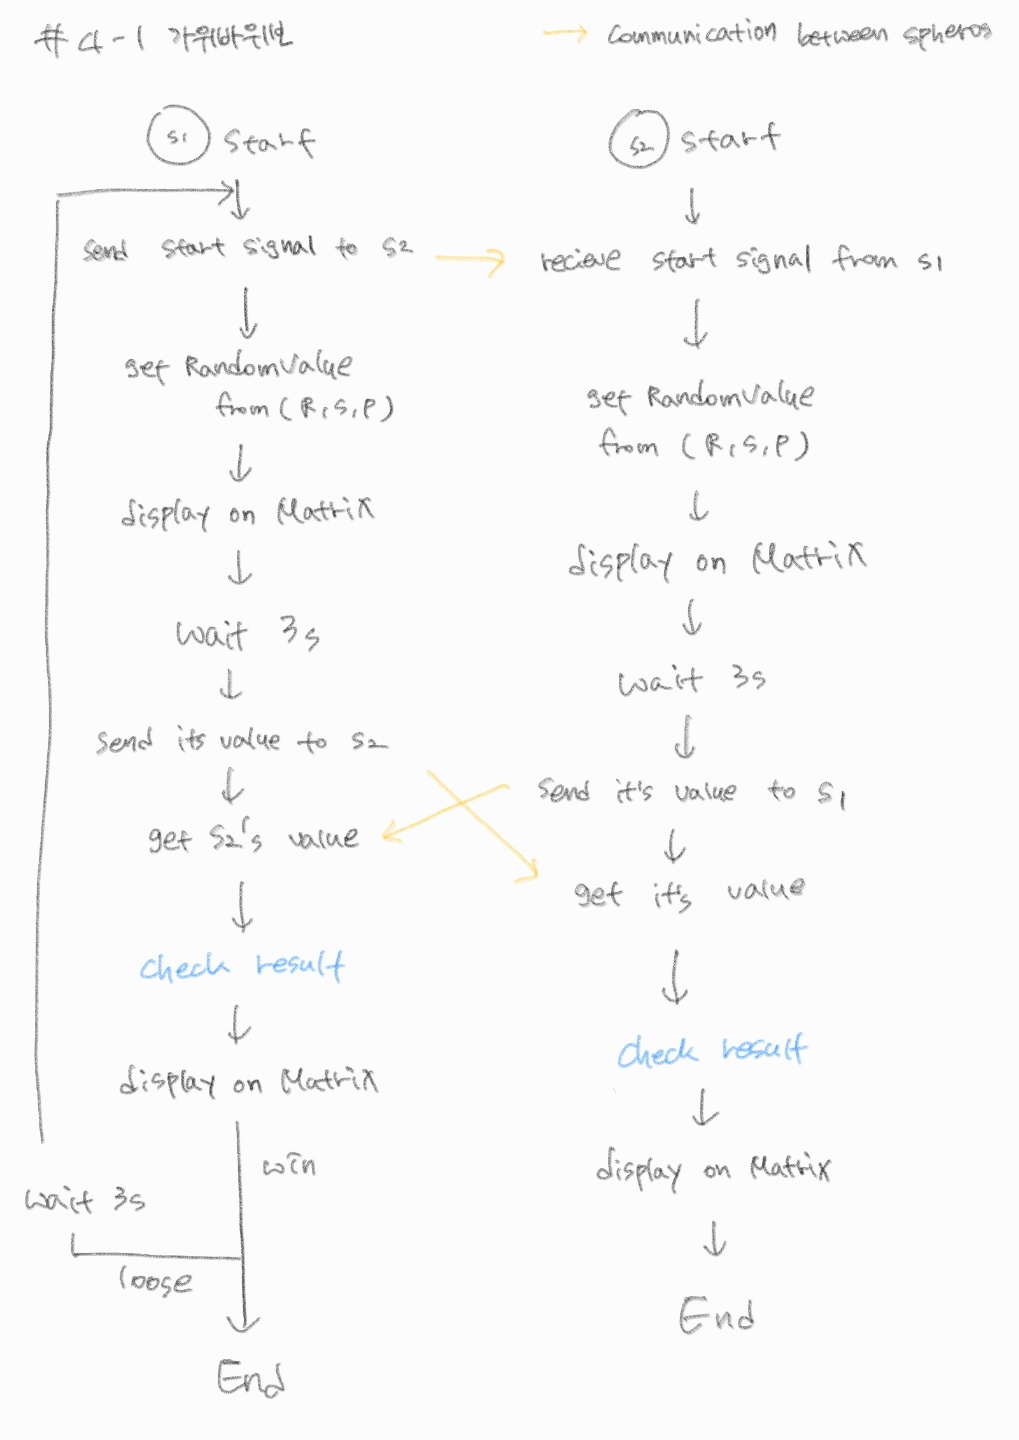 #4-1 가위바위보
→ Communication between spheros
S1 start
send start signal to S2
get RandomValue
from (R,S,P)
display on Matrix
wait 3s
send its value to S2
get S2's value
check result
display on Matrix
win
wait 3s
loose
End
S2 start
recieve start signal from S1
get RandomValue
from (R,S,P)
display on Matrix
wait 3s
send it's value to S1
get it's value
check result
display on Matrix
End